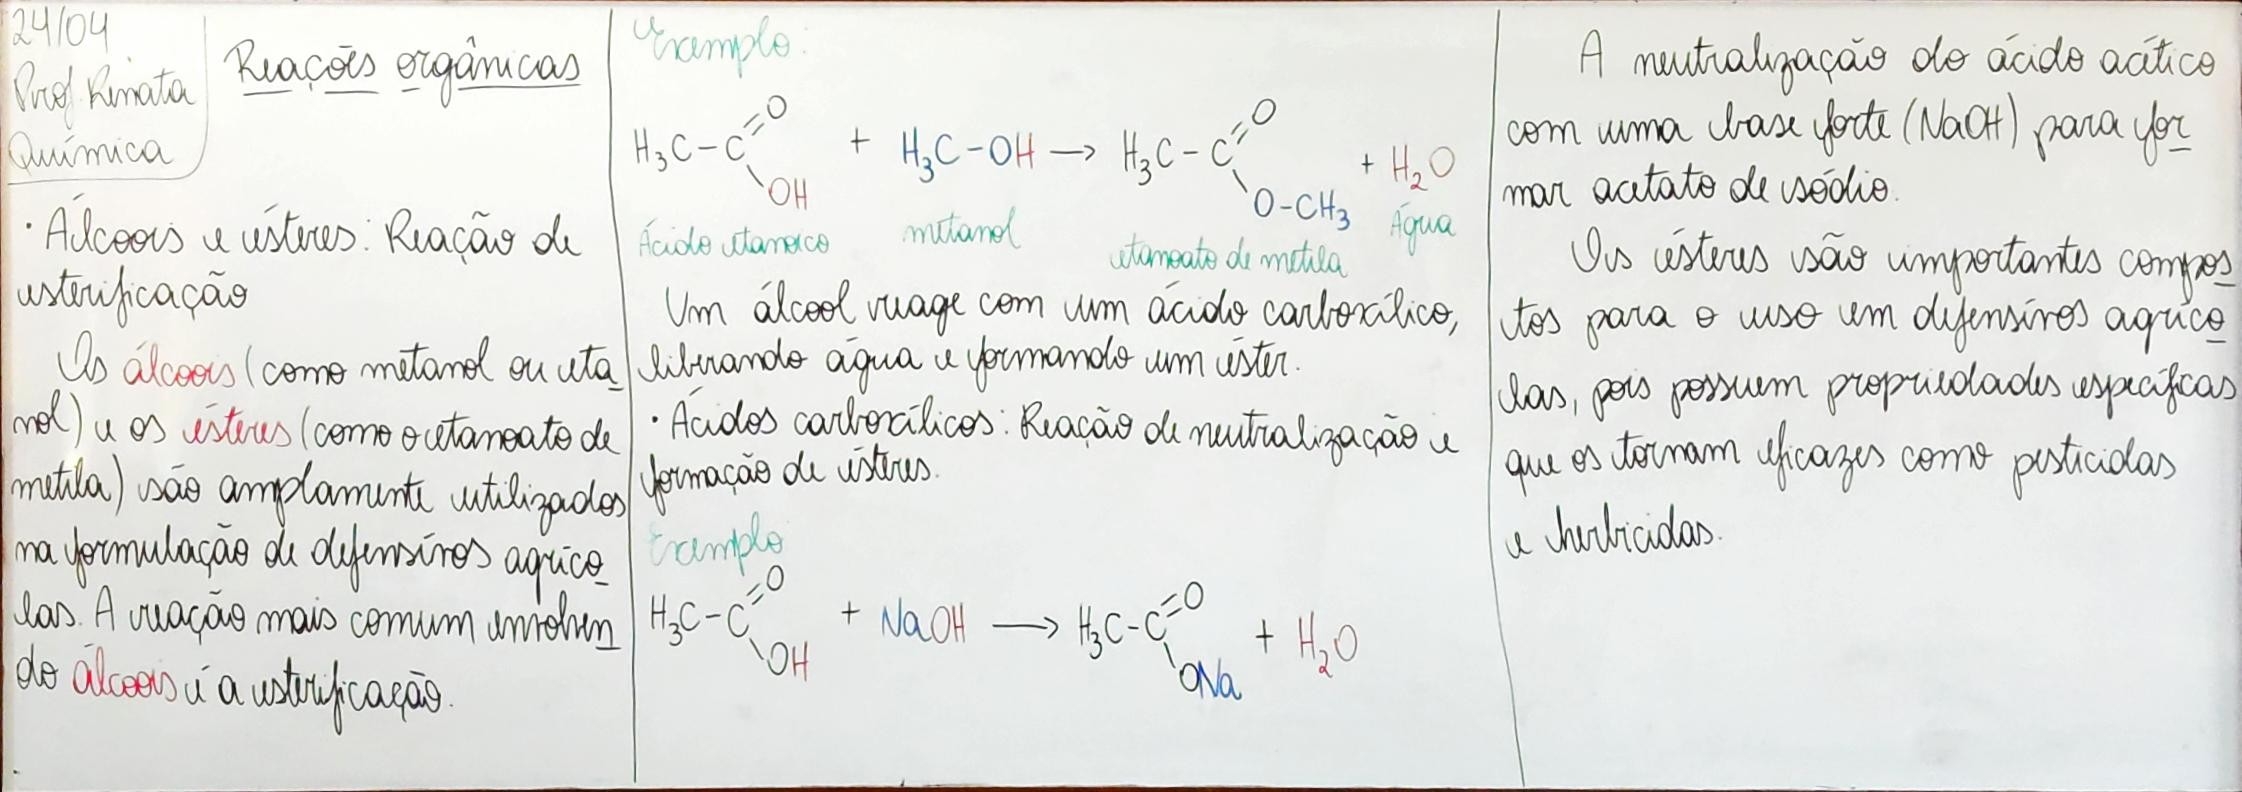 24/04
Prof. Renata
Química
Reações orgânicas
· Álcoois e ésteres: Reação de
esterificação
Os álcoois (como metanol ou eta
nol) e os ésteres (como o etanoato de
metila) são amplamente utilizados
na formulação de defensivos agríco
las. A reação mais comum envolven
do álcoois é a esterificação.
Exemplo:
H₃C-C=O OH + H₃C-OH → H₃C-C=O O-CH₃ + H₂O
Ácido etanoico metanol etanoato de metila Água
Um álcool reage com um ácido carboxílico,
liberando água e formando um éster.
· Ácidos carboxílicos: Reação de neutralização e
formação de ésteres.
Exemplo
H₃C-C=O OH + NaOH → H₃C-C=O ONa + H₂O
A neutralização do ácido acético
com uma base forte (NaOH) para for
mar acetato de sódio.
Os ésteres são importantes compos
tos para o uso em defensivos agríco
las, pois possuem propriedades específicas
que os tornam eficazes como pesticidas
e herbicidas.